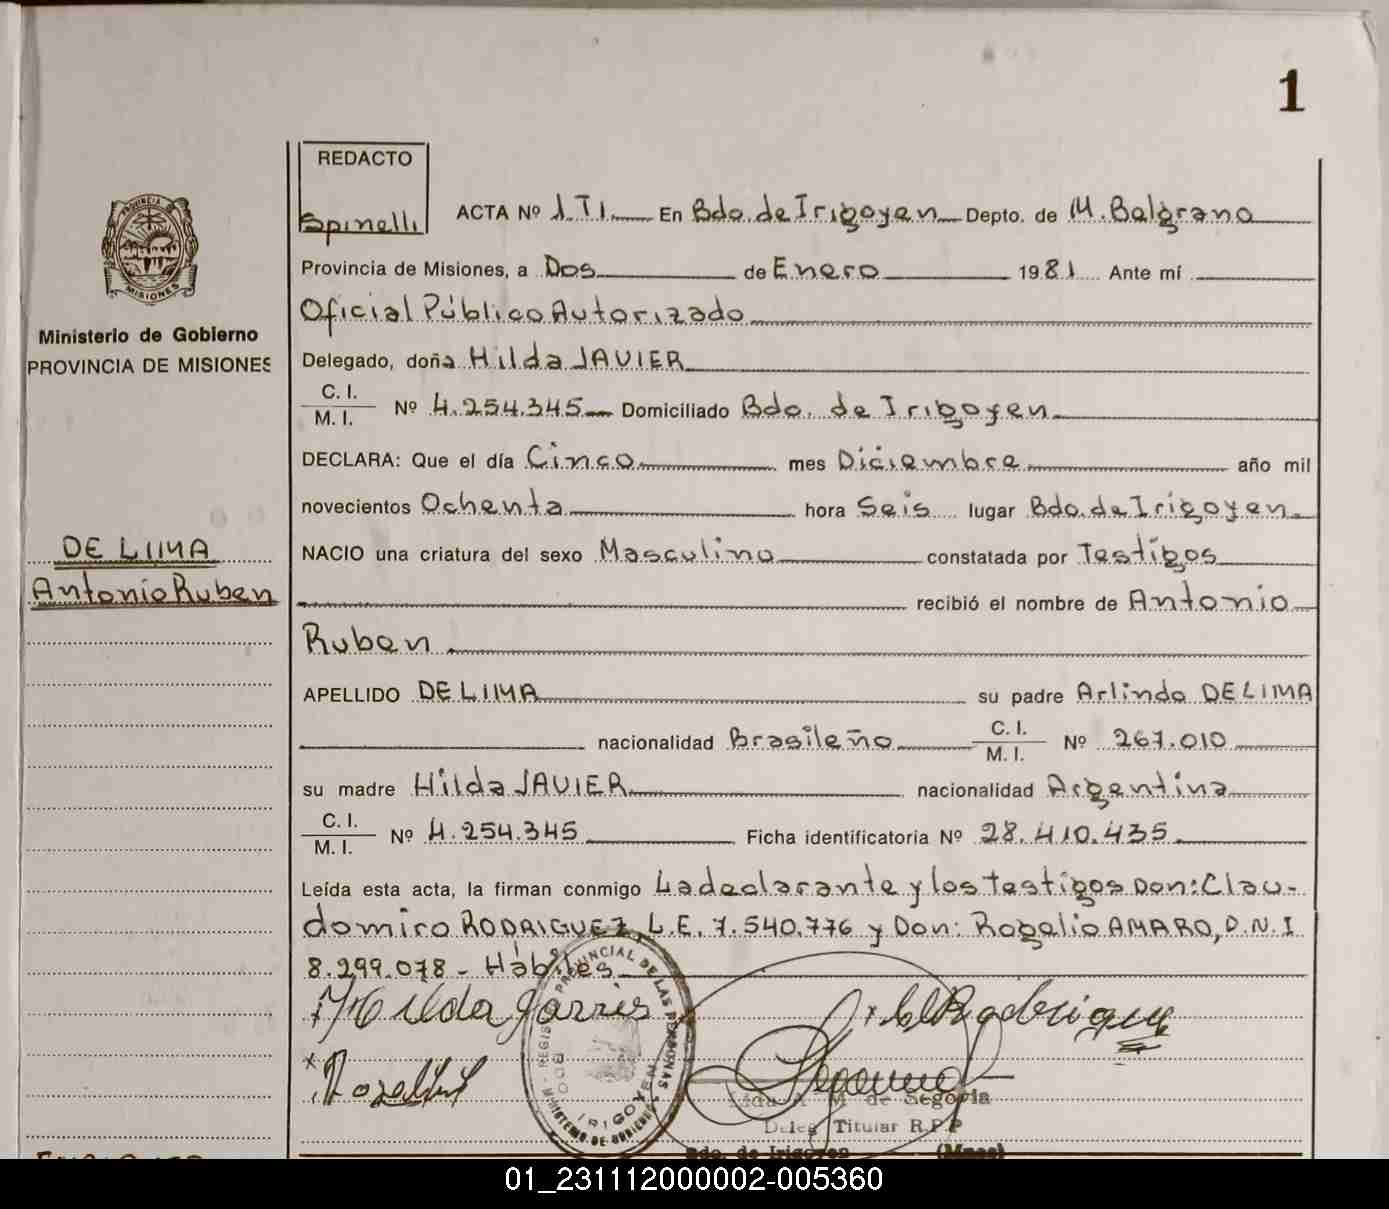 1
REDACTO
Spinelli
ACTA Nº 1.T1. En Bdo. de Irigoyen Depto. de M. Belgrano
Provincia de Misiones, a Dos de Enero 1981 Ante mí
Oficial Público Autorizado
Delegado, doña Hilda JAVIER
C. I.
M. I.
Nº 4.254.345 Domiciliado Bdo. de Irigoyen
DECLARA: Que el día Cinco mes Diciembre año mil
novecientos Ochenta hora Seis lugar Bdo. de Irigoyen
NACIO una criatura del sexo Masculino constatada por Testigos
recibió el nombre de Antonio
Ruben
APELLIDO DE LIMA su padre Arlindo DE LIMA
nacionalidad Brasileño C. I.
M. I.
Nº 267.010
su madre Hilda JAVIER nacionalidad Argentina
C. I.
M. I.
Nº 4.254.345 Ficha identificatoria Nº 28.410.435
Leída esta acta, la firman conmigo La declarante y los testigos Don: Clau-
domiro RODRIGUEZ, L.E. 7.540.776 y Don: Rogelio AMARO, D.N.I
8.299.078 - Hábiles
PROVINCIA DE
MISIONES
Ministerio de Gobierno
PROVINCIA DE MISIONES
DE LIMA
Antonio Ruben
Hilda
REGISTRO PROVINCIAL DE LAS PERSONAS
MINISTERIO DE GOBIERNO
BDO. IRIGOYEN
M. de Segovia
Deleg Titular R.P.P
Bdo. de Irigoyen (Mnes)
01_231112000002-005360